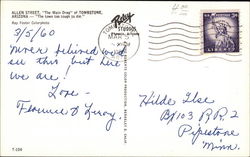 ALLEN STREET, "The Main Drag" of TOMBSTONE,
ARIZONA — "The town too tough to die."
Ray Foster Colorphoto
Petley
STUDIOS
Phoenix, Arizona
3/5/60
Never believed we'd
see this but here
we are!
Love -
Florence & Leroy.
Hilda Ilse
B103 R R 2
Pipestone
Minn.
T-256